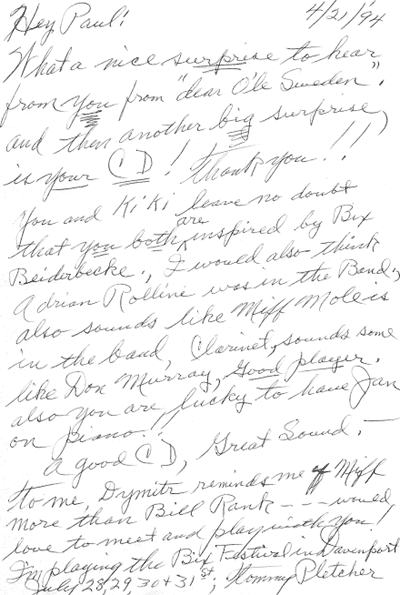 Hey Paul! 4/21/'94
What a nice surprise to hear
from you from "dear O'le Sweden".
and then another big surprise,
is your CD! Thank you!!!
You and KiKi leave no doubt
that you both are inspired by Bix
Beiderbecke., I would also think
Adrian Rollini was in the Band,
also sounds like Miff Mole is
in the band, Clarinet, sounds some
like Don Murray, Good player.
also you are lucky to have Jan
on piano!!
A good CD, Great Sound. —
to me, Dymitr reminds me of Miff
more than Bill Rank - - - would
love to meet and play with you!
I'm playing the Bix Festival in Davenport
July 28, 29, 30 + 31st; Tommy Pletcher